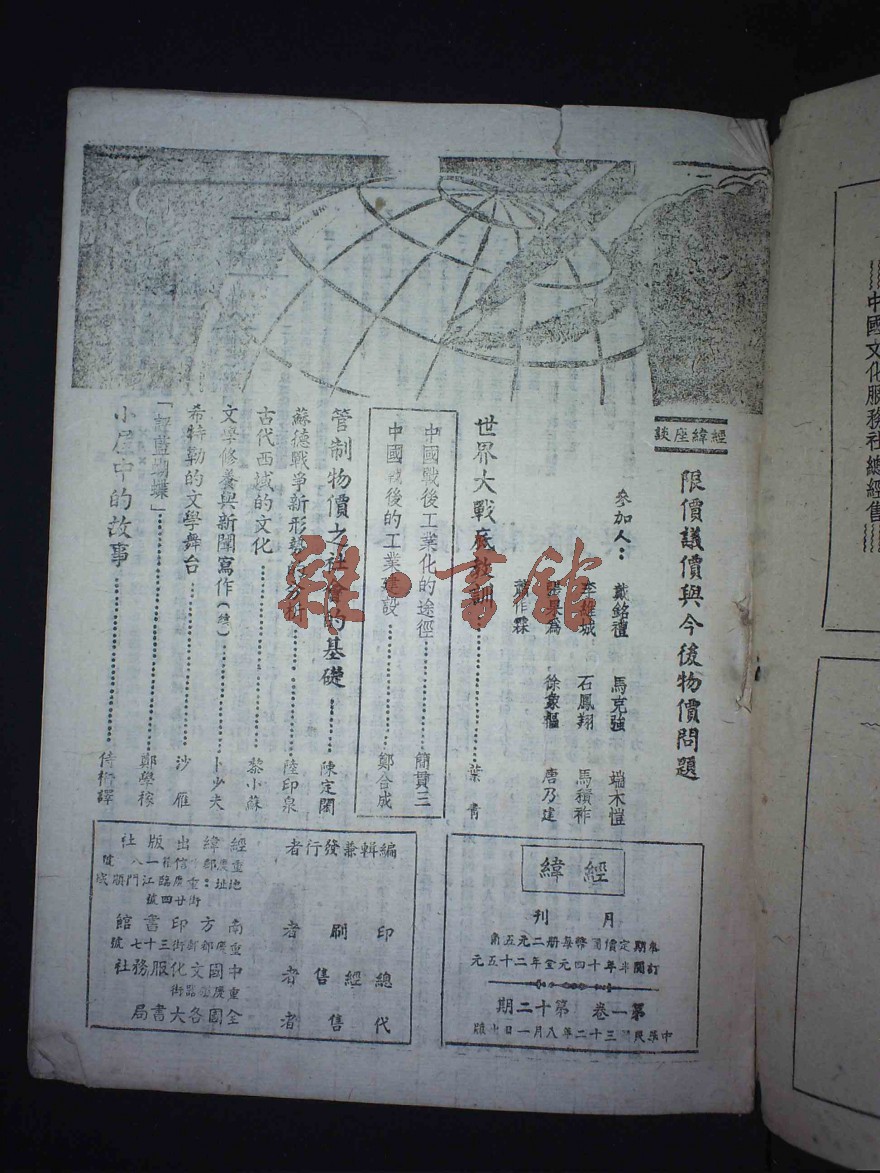 經緯座談
限價議價與今後物價問題
參加人： 戴銘禮 馬克強 端木愷
李雄城 石鳳翔 馬積祚
張果為 徐象樞 唐乃建
蕭作霖
世界大戰底教訓 葉青
中國戰後工業化的途徑 簡貫三
中國戰後的工業建設 鄭合成
管制物價之社會的基礎 陳定閎
蘇德戰爭新形勢的分析 陸印泉
古代西域的文化 黎小蘇
文學修養與新聞寫作(續) 卜少夫
希特勒的文學舞台 沙雁
「評藍蝴蝶」 鄭學稼
小屋中的故事 侍桁譯
經緯
月刊
每期定價國幣每冊二元五角
訂閱半年十四元全年二十五元
第一卷 第十二期
中華民國三十二年八月一日出版
編輯兼發行者 經緯出版社
印刷者 南方印書館
總經售者 中國文化服務社
代售者 全國各大書局
中國文化服務社總經售
雜·書館